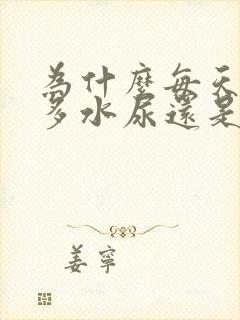 為什麼每天
多水尿還是
姜寧